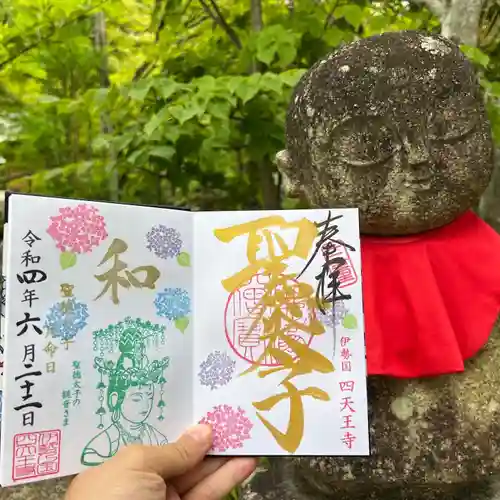 奉拝
聖徳太子
伊勢国 四天王寺
和
聖徳太子の観音さま
令和四年六月二十二日